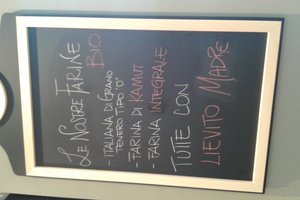 LE NOSTRE FARINE
BIO
- ITALIANA DI GRANO
TENERO TIPO "0"
- FARINA DI KAMUT
- FARINA INTEGRALE
TUTTE CON
LIEVITO MADRE